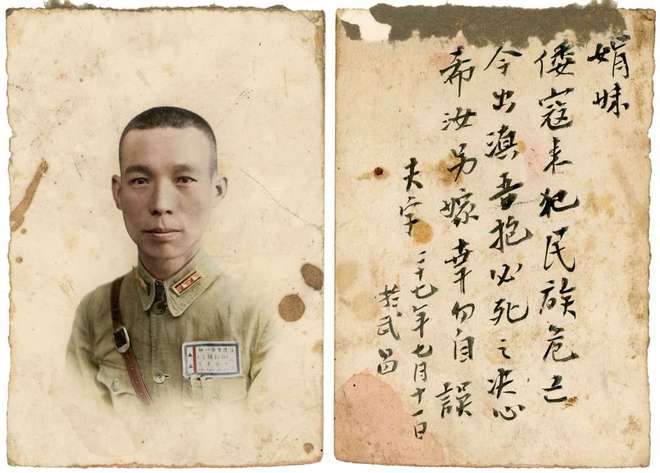 娟妹
倭寇来犯民族危亡
今出滇吾抱必死之决心
希汝另嫁幸勿自誤
夫字 二十七年七月十一日
於武昌